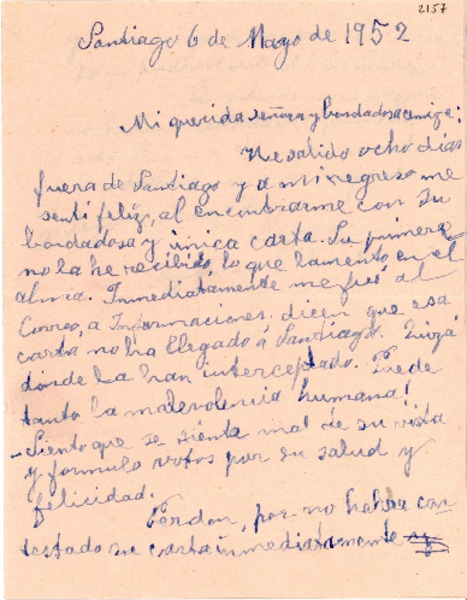 2157
Santiago 6 de Mayo de 1952
Mi querida señora y bondadosa amiga:
He salido ocho días
fuera de Santiago y a mi regreso me
sentí feliz, al encontrarme con su
bondadosa y única carta. Su primera
no la he recibido, lo que lamento en el
alma. Inmediatamente me fuí al
Correo, a Informaciones. dicen que esa
carta no ha llegado á Santiago. Quizá
dónde la han interceptado. Puede
tanto la malevolencia humana!
- Siento que se sienta mal de su vista
y formulo votos por su salud y
felicidad.
Perdon, por no haber con
testado su carta inmediatamente